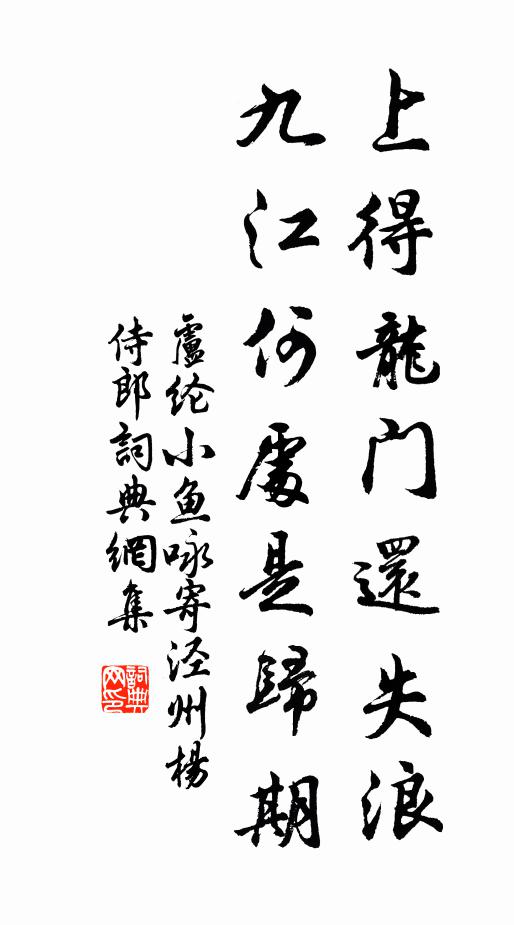 上得龍门還失浪
九江何處是歸期
盧纶小鱼咏寄泾州楊
侍郎詞典網集
詞典网印